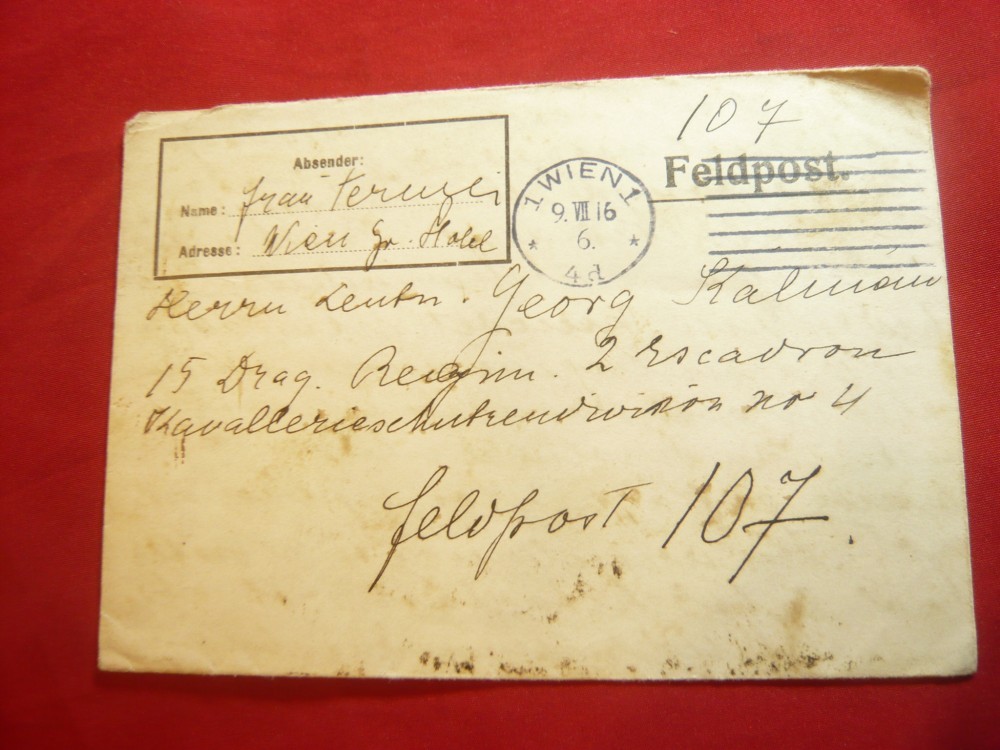 107
Feldpost.
Absender:
Name: Frau
Adresse: Wien Gr. Hotel
1 WIEN 1
9. VII 16
6.
* *
4d
Herrn Leutn. Georg Kálmán
15 Drag. Regim. 2 Escadron
Kavallerieschutzendivision no 4
feldpost 107.